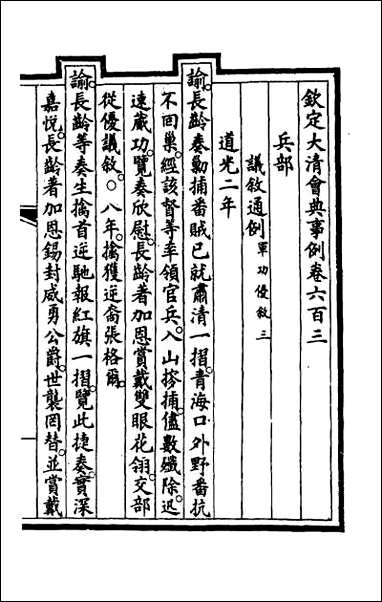 欽定大清會典事例卷六百三
兵部
議敘通例軍功優敘三
道光二年
諭長齡奏勦捕番賊已就肅清一摺青海口外野番抗
不回巢經該督等率領官兵入山搜捕儘數殲除迅
速蕆功覽奏欣慰長齡著加恩賞戴雙眼花翎交部
從優議敘○八年擒獲逆裔張格爾
諭長齡等奏生擒首逆馳報紅旗一摺覽此捷奏實深
嘉悅長齡著加恩錫封威勇公爵世襲罔替並賞戴